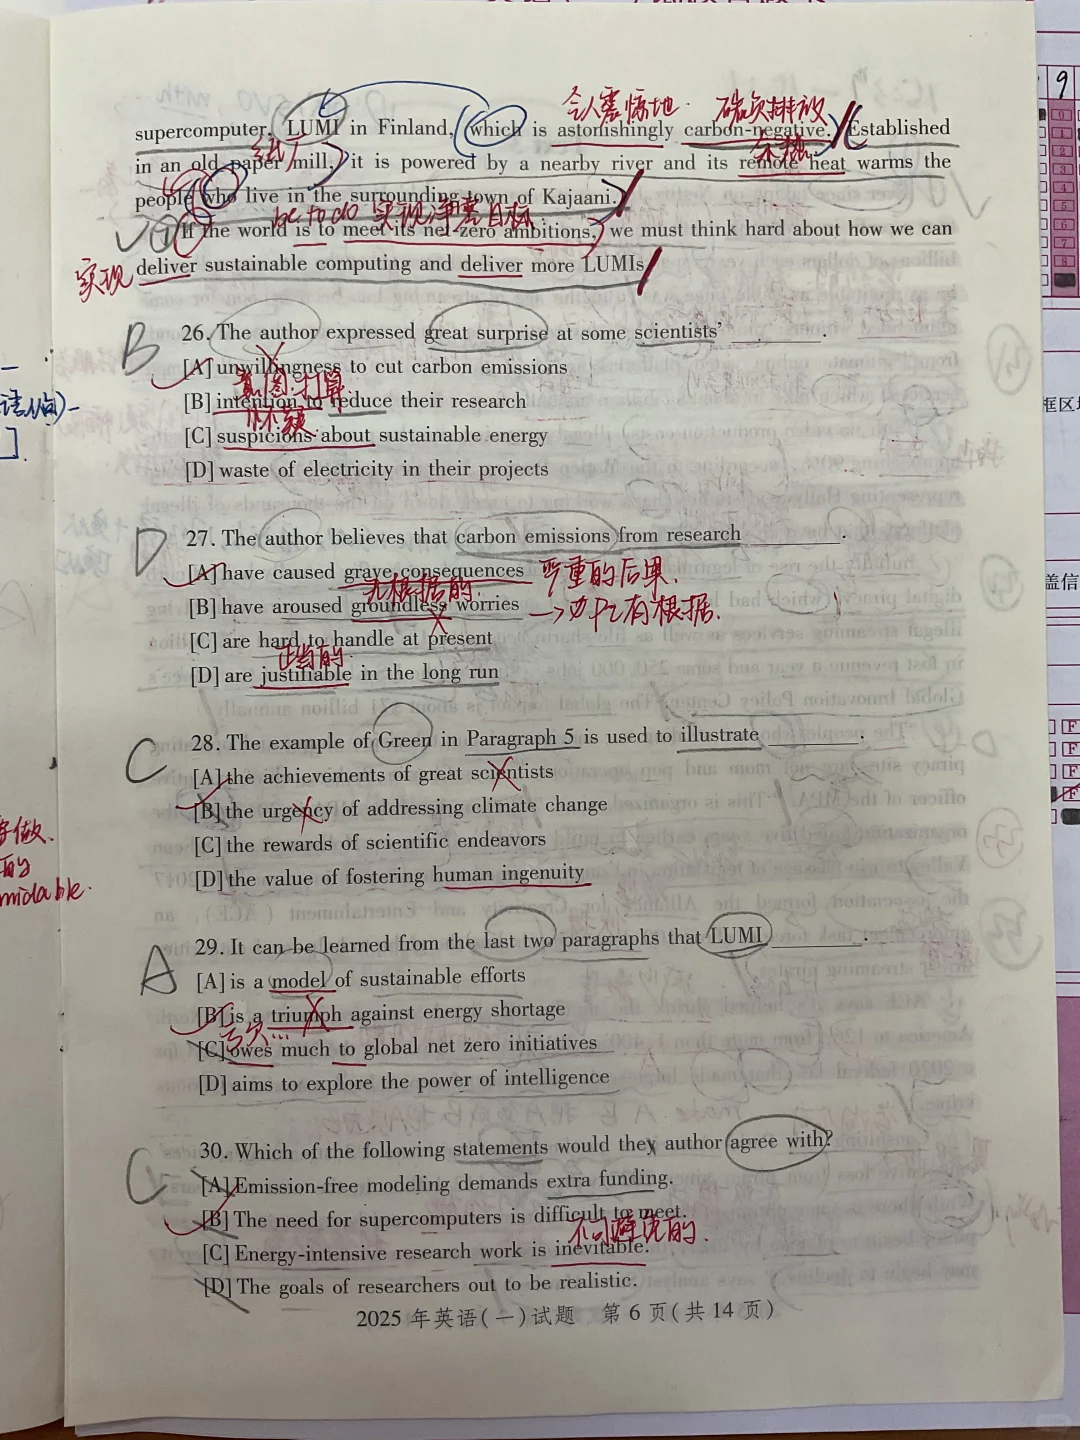 令人震惊地. 碳负排放
supercomputer, LUMI in Finland, which is astonishingly carbon-negative. Established
纸厂 余热
in an old paper mill, it is powered by a nearby river and its remote heat warms the
people who live in the surrounding town of Kajaani.
be to do 实现净零目标
① If the world is to meet its net-zero ambitions, we must think hard about how we can
实现 deliver sustainable computing and deliver more LUMIs
B 26. The author expressed great surprise at some scientists' ________.
[A] unwillingness to cut carbon emissions
意图.打算
[B] intention to reduce their research
怀疑
[C] suspicions about sustainable energy
[D] waste of electricity in their projects
D 27. The author believes that carbon emissions from research ________.
[A] have caused grave consequences 严重的后果.
无根据的
[B] have aroused groundless worries
[C] are hard to handle at present
正当的
[D] are justifiable in the long run
C 28. The example of Green in Paragraph 5 is used to illustrate ________.
[A] the achievements of great scientists
[B] the urgency of addressing climate change
[C] the rewards of scientific endeavors
[D] the value of fostering human ingenuity
A 29. It can be learned from the last two paragraphs that LUMI ________.
[A] is a model of sustainable efforts
[B] is a triumph against energy shortage
亏欠...
[C] owes much to global net zero initiatives
[D] aims to explore the power of intelligence
C 30. Which of the following statements would they author agree with?
[A] Emission-free modeling demands extra funding.
[B] The need for supercomputers is difficult to meet.
不可避免的.
[C] Energy-intensive research work is inevitable.
[D] The goals of researchers out to be realistic.
2025 年英语(一)试题 第 6 页(共 14 页)